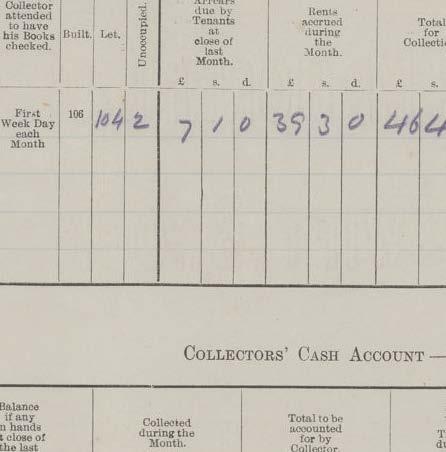 Collector
attended
to have
his Books
checked.
Built.
Let.
Unoccupied.
Arrears
due by
Tenants
at
close of
last
Month.
Rents
accrued
during
the
Month.
Total
for
£ s. d. £ s. d. £ s.
First
Week Day
each
Month
106 104 2 7 1 0 39 3 0 46 4
COLLECTORS' CASH ACCOUNT —
Balance
if any
hands
close of
the last
Collected
during the
Month.
Total to be
accounted
for by
Collector.